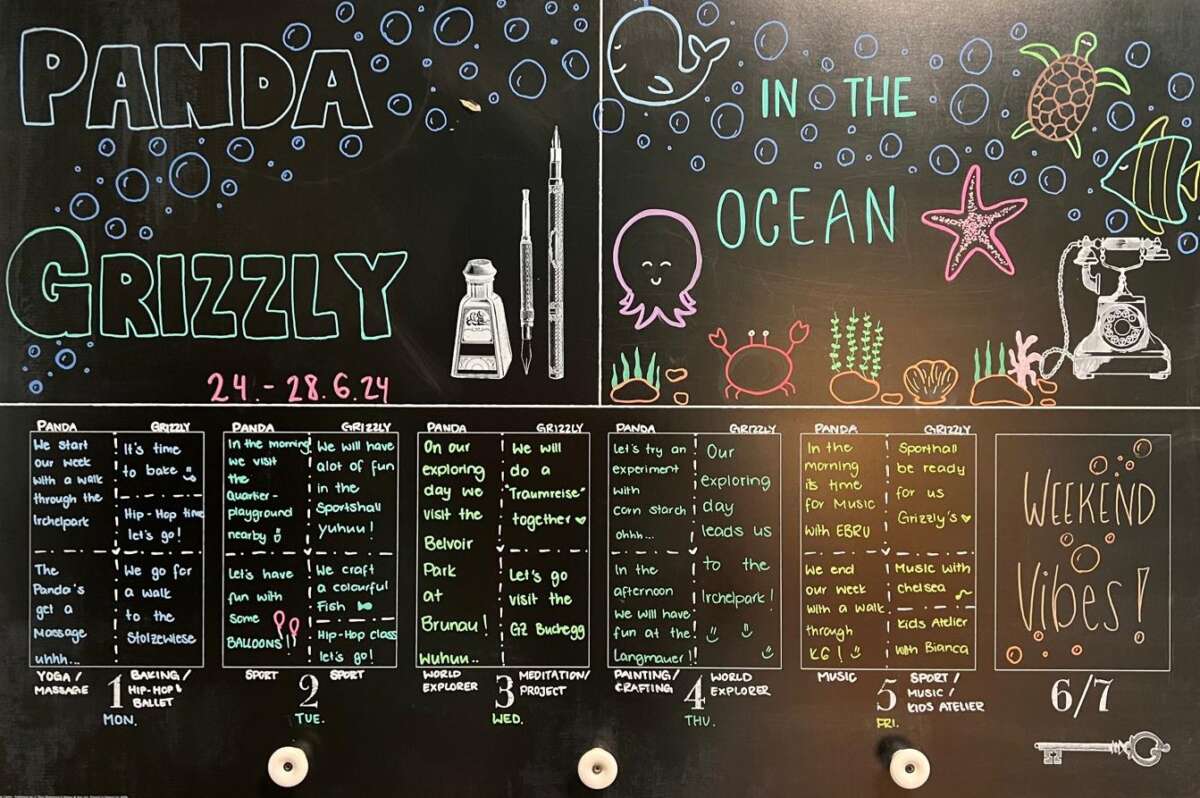 PANDA
GRIZZLY
24. - 28.6.24
IN THE
OCEAN
PANDA
We start
our week
with a walk
through the
Irchelpark
The
Panda's
get a
Massage
uhhh...
GRIZZLY
It's time
to bake
Hip-Hop time
let's go!
We go for
a walk
to the
Stolzewiese
YOGA /
MASSAGE
1
MON.
BAKING /
HIP-HOP &
BALLET
PANDA
In the morning
we visit
the
Quartier-
playground
nearby
Let's have
fun with
some
BALLOONS!!
GRIZZLY
We will have
alot of fun
in the
Sportshall
yuhuu!
We craft
a colourful
Fish
Hip-Hop class
let's go!
SPORT
2
TUE.
SPORT
PANDA
On our
exploring
day we
visit the
Belvoir
Park
at
Brunau!
Wuhuu..
GRIZZLY
We will
do a
"Traumreise"
together
Let's go
visit the
GZ Buchegg
WORLD
EXPLORER
3
WED.
MEDITATION/
PROJECT
PANDA
Let's try an
experiment
with
corn starch
ohhh...
In the
afternoon
We will have
fun at the
Langmauer!
GRIZZLY
Our
exploring
day
leads us
to the
Irchelpark!
PAINTING/
CRAFTING
4
THU.
WORLD
EXPLORER
PANDA
In the
morning
its time
for Music
with EBRU
We end
our week
with a walk
through
K6!
GRIZZLY
Sporthall
be ready
for us
Grizzly's
Music with
Chelsea
Kids Atelier
with Bianca
MUSIC
5
FRI.
SPORT /
MUSIC /
KIDS ATELIER
WEEKEND
Vibes!
6/7